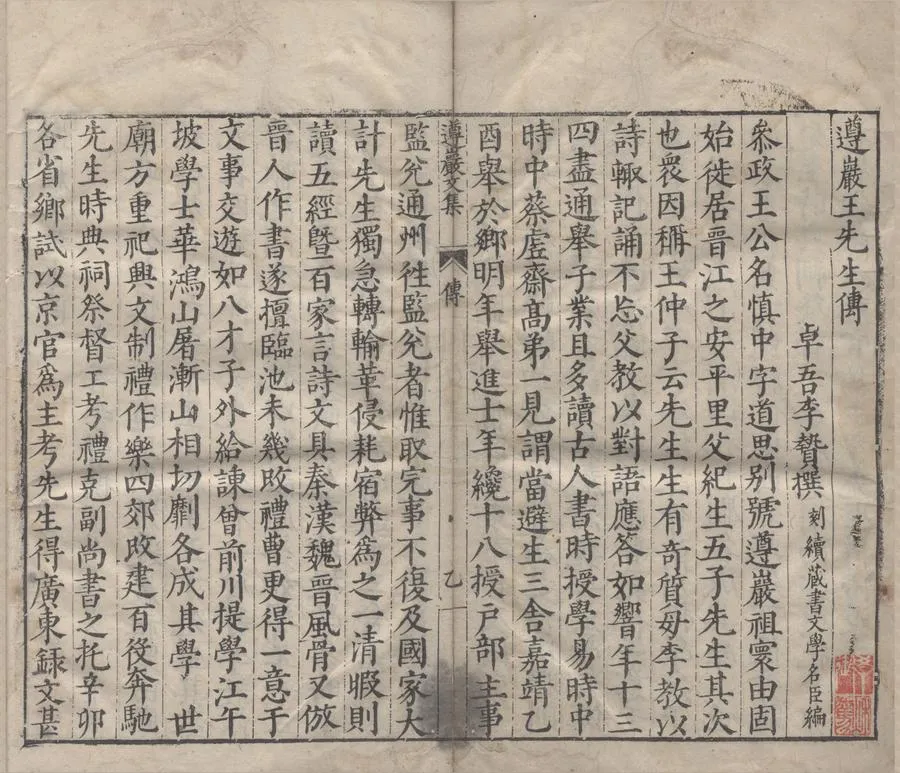 遵巖王先生傳
卓吾李贄撰 刻續藏書文學名臣編
叅政王公名慎中字道思別號遵巖祖寰由固
始徙居晉江之安平里父紀生五子先生其次
也衆因稱王仲子云先生生有奇質母李教以
詩輙記誦不忘父教以對語應答如響年十三
四盡通舉子業且多讀古人書時授學易時中
時中蔡虛齋高弟一見謂當避生三舍嘉靖乙
酉舉於鄉明年舉進士年纔十八授戶部主事
遵巖文集 傳 乙
監兊通州徃監兊者惟取完事不復及國家大
計先生獨急轉輸革侵耗宿弊為之一清暇則
讀五經暨百家言詩文具秦漢魏晉風骨又倣
晉人作書遂擅臨池未幾改禮曹更得一意于
文事交遊如八才子外給諫曾前川提學江午
坡學士華鴻山屠漸山相切劘各成其學 世
廟方重祀典文制禮作樂四郊改建百役奔馳
先生時典祠祭督工考禮克副尚書之托辛卯
各省鄉試以京官為主考先生得廣東錄文甚